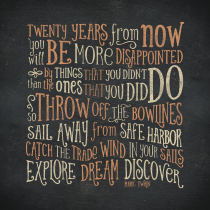 TWENTY YEARS from now
you will BE MORE DISAPPOINTED
by THINGS THAT YOU DIDN'T DO
than the ones THAT YOU DID
so THROW OFF THE BOWLINES
SAIL AWAY from SAFE HARBOR
CATCH THE TRADE WIND IN YOUR SAILS
EXPLORE DREAM DISCOVER
MARK TWAIN